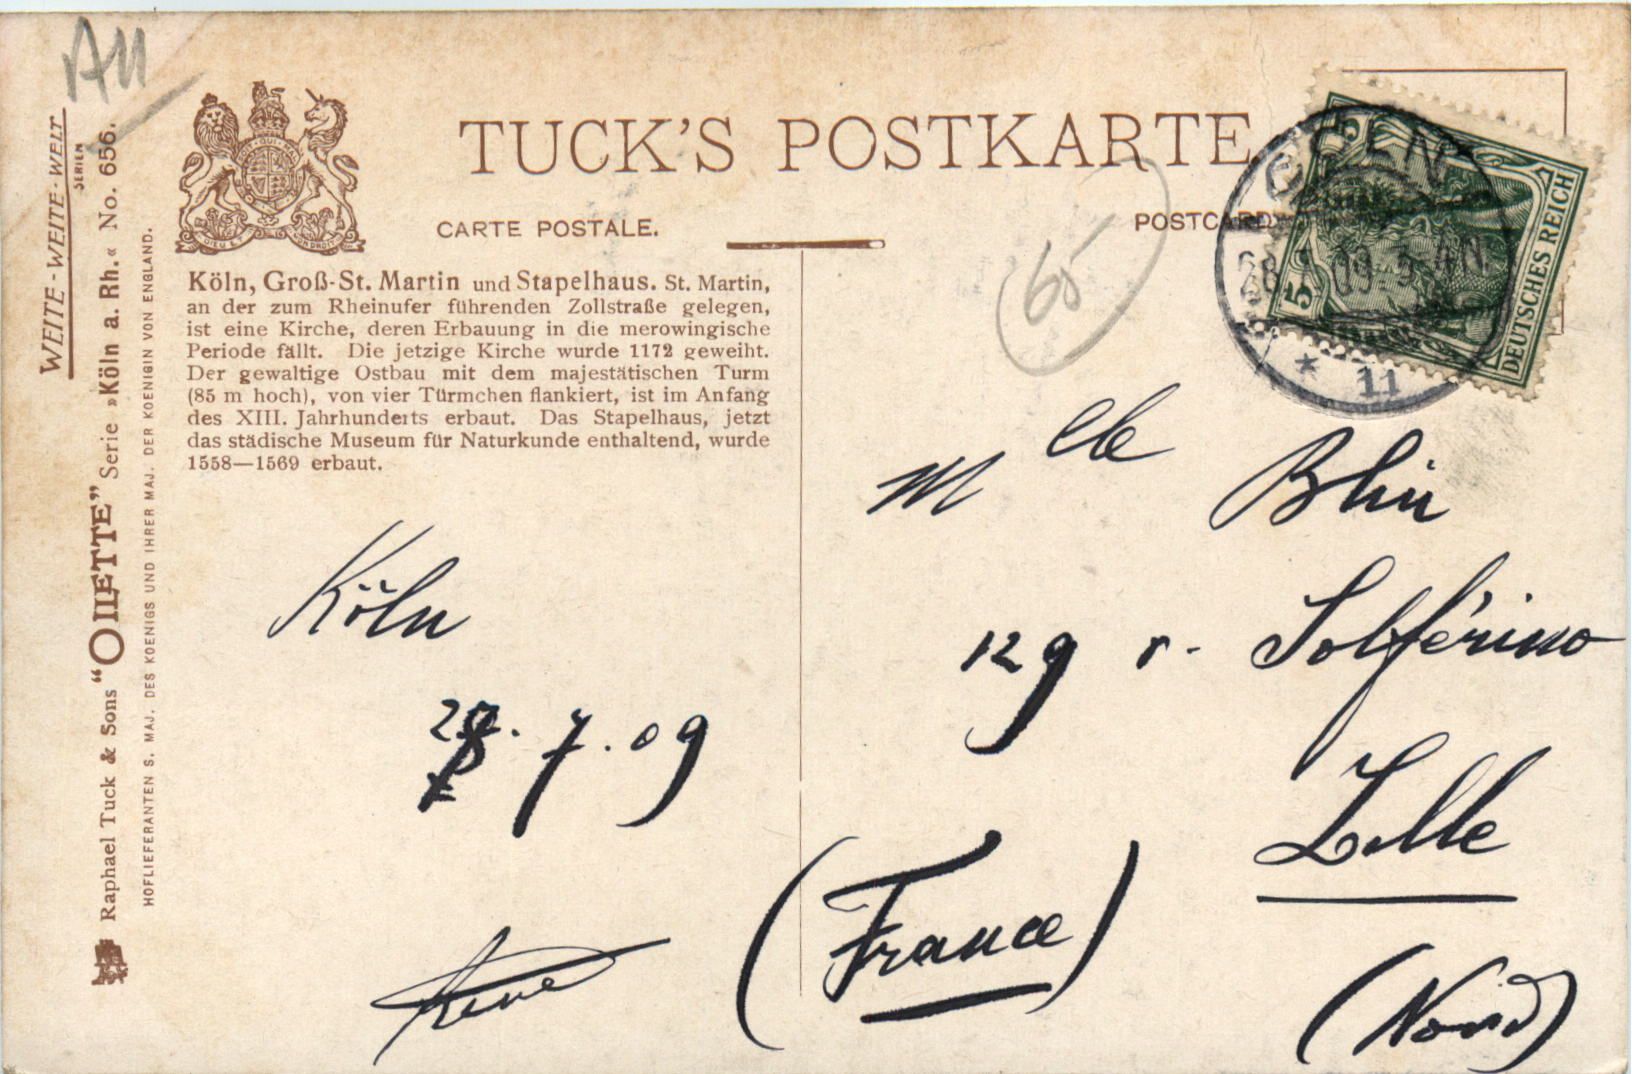 AU
WEITE-WEITE-WELT
SERIEN
Raphael Tuck & Sons “OILETTE” Serie »Köln a. Rh.« No. 656.
HOFLIEFERANTEN S. MAJ. DES KOENIGS UND IHRER MAJ. DER KOENIGIN VON ENGLAND.
TUCK'S POSTKARTE
CARTE POSTALE.
POSTCARD
65
DEUTSCHES REICH
5
5
28.7.09.3-4N
* 11
Köln, Groß-St. Martin und Stapelhaus. St. Martin,
an der zum Rheinufer führenden Zollstraße gelegen,
ist eine Kirche, deren Erbauung in die merowingische
Periode fällt. Die jetzige Kirche wurde 1172 geweiht.
Der gewaltige Ostbau mit dem majestätischen Turm
(85 m hoch), von vier Türmchen flankiert, ist im Anfang
des XIII. Jahrhunderts erbaut. Das Stapelhaus, jetzt
das städische Museum für Naturkunde enthaltend, wurde
1558—1569 erbaut.
Köln
28.7.09
René
Mlle Blin
129 r. Solférino
Lille
(France)
(Nord)